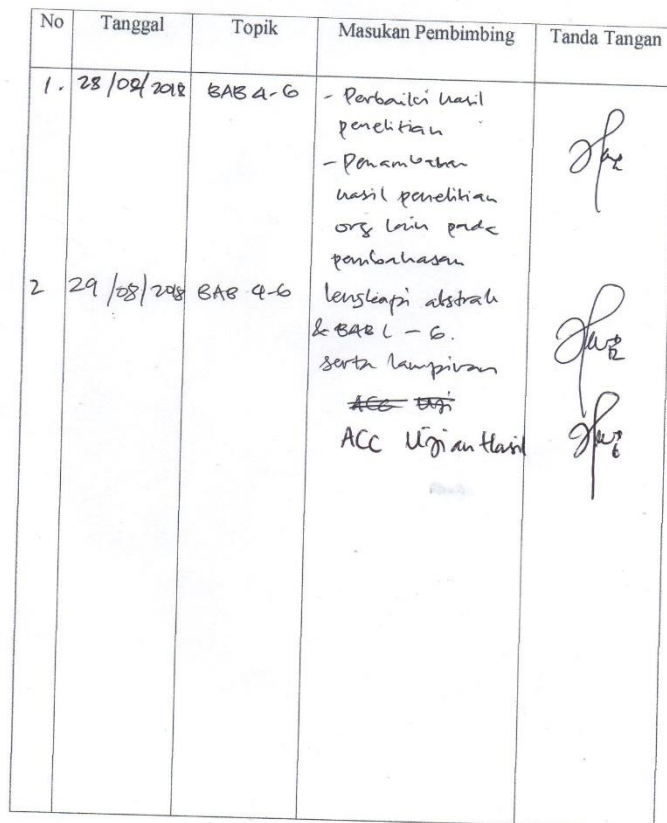 No Tanggal Topik Masukan Pembimbing Tanda Tangan
1. 28/08/2018 BAB 4-6 - Perbaiki hasil
penelitian
- Penambahan
hasil penelitian
org lain pada
pembahasan
2 29/08/2018 BAB 4-6 lengkapi abstrak
& BAB 1 - 6.
serta lampiran
ACC Uji
ACC Ujian Hasil